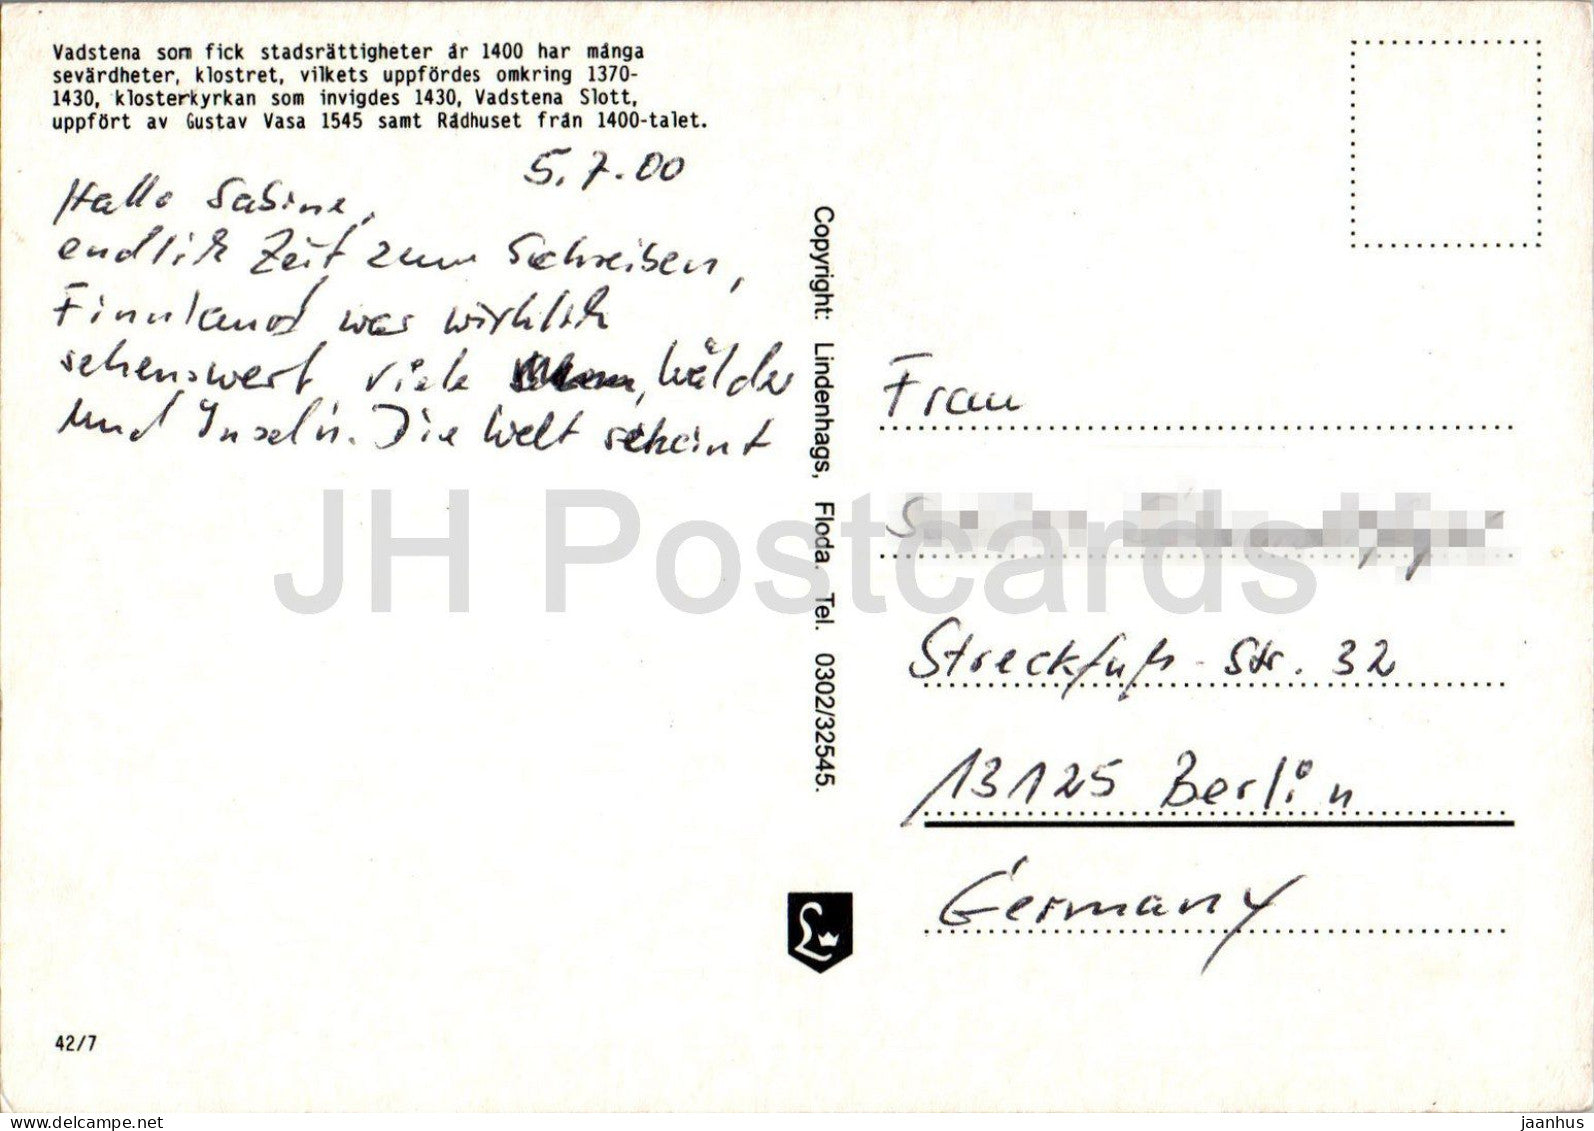 Vadstena som fick stadsrättigheter år 1400 har många
sevärdheter, klostret, vilkets uppfördes omkring 1370-
1430, klosterkyrkan som invigdes 1430, Vadstena Slott,
uppfört av Gustav Vasa 1545 samt Rådhuset från 1400-talet.
5.7.00
Hallo Sabine,
endlich Zeit zum Schreiben,
Finnland war wirklich
sehenswert, viele Wälder
und Inseln. Die Welt scheint
42/7
Copyright: Lindenhags, Floda. Tel. 0302/32545.
Frau
Streckfuß-Str. 32
13125 Berlin
Germany
JH Postcards
www.delcampe.net
jaanhus